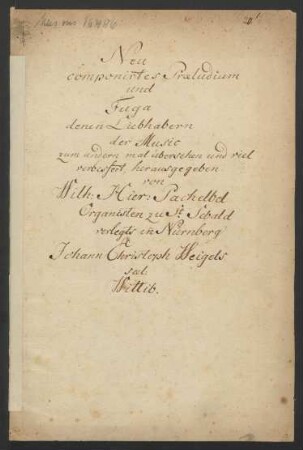 Mus. ms. 16486
Neu
componirtes Præludium
und
Fuga
denen Liebhabern
der Music
zum andern mal übersehen und viel
verbessert, herausgegeben
von
Wilh: Hier: Pachelbel
Organisten zu St. Sebald
verlegts in Nürnberg
Johann Christoph Weigels
seel.
Wittib.